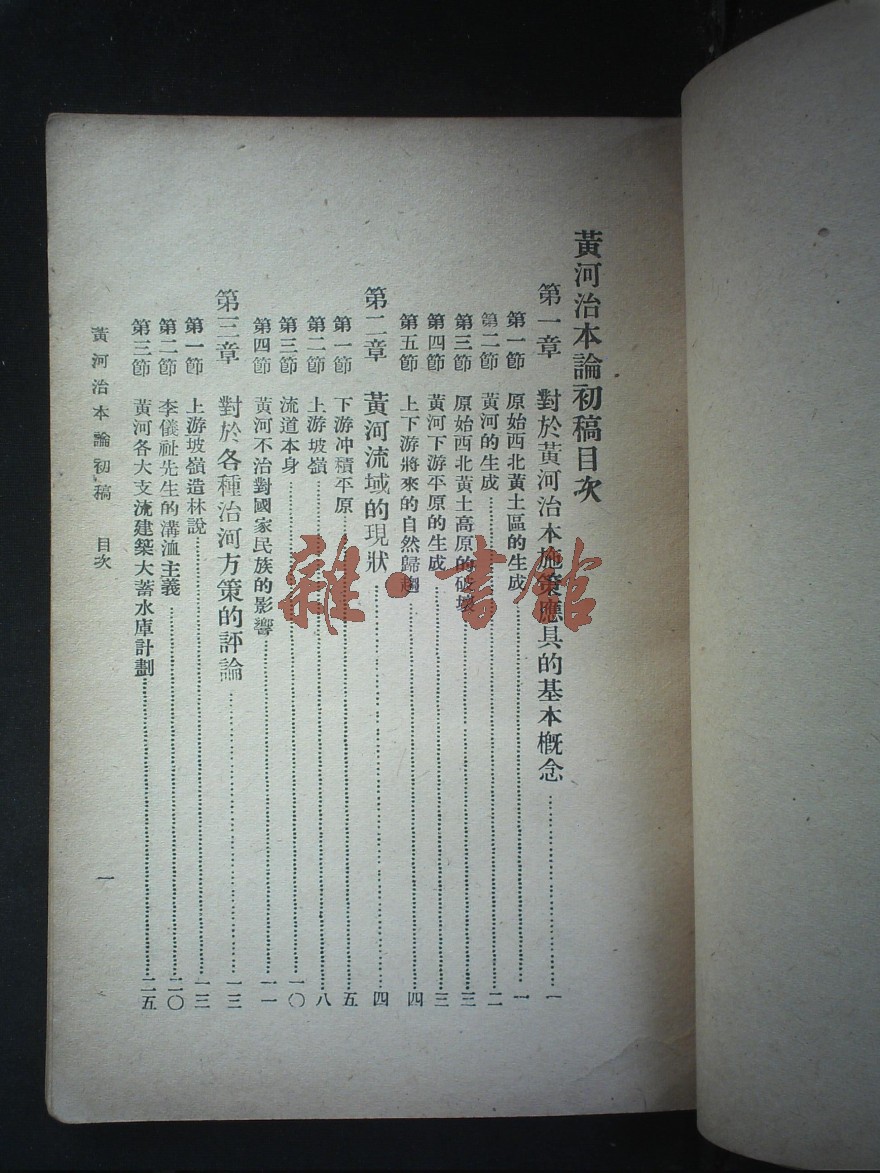 黃河治本論初稿目次
第一章 對於黃河治本施策應具的基本概念………一
第一節 原始西北黃土區的生成………一
第二節 黃河的生成………二
第三節 原始西北黃土高原的破壞………三
第四節 黃河下游平原的生成………三
第五節 上下游將來的自然歸趨………四
第二章 黃河流域的現狀………四
第一節 下游冲積平原………五
第二節 上游坡嶺………八
第三節 流道本身………一〇
第四節 黃河不治對國家民族的影響………一一
第三章 對於各種治河方策的評論………一三
第一節 上游坡嶺造林說………一三
第二節 李儀祉先生的溝洫主義………二〇
第三節 黃河各大支流建築大蓄水庫計劃………二五
黃河治本論初稿 目次 一
雜·書館